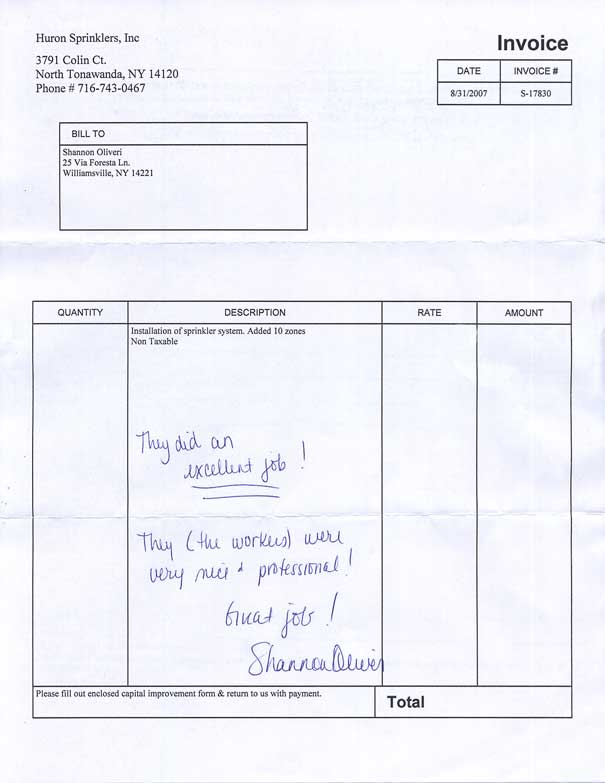 Huron Sprinklers, Inc
3791 Colin Ct.
North Tonawanda, NY 14120
Phone # 716-743-0467
Invoice
DATE INVOICE #
8/31/2007 S-17830
BILL TO
Shannon Oliveri
25 Via Foresta Ln.
Williamsville, NY 14221
QUANTITY DESCRIPTION RATE AMOUNT
Installation of sprinkler system. Added 10 zones
Non Taxable
They did an
excellent job !
They (the workers) were
very nice & professional!
Great job !
Shannon Oliveri
Please fill out enclosed capital improvement form & return to us with payment.
Total